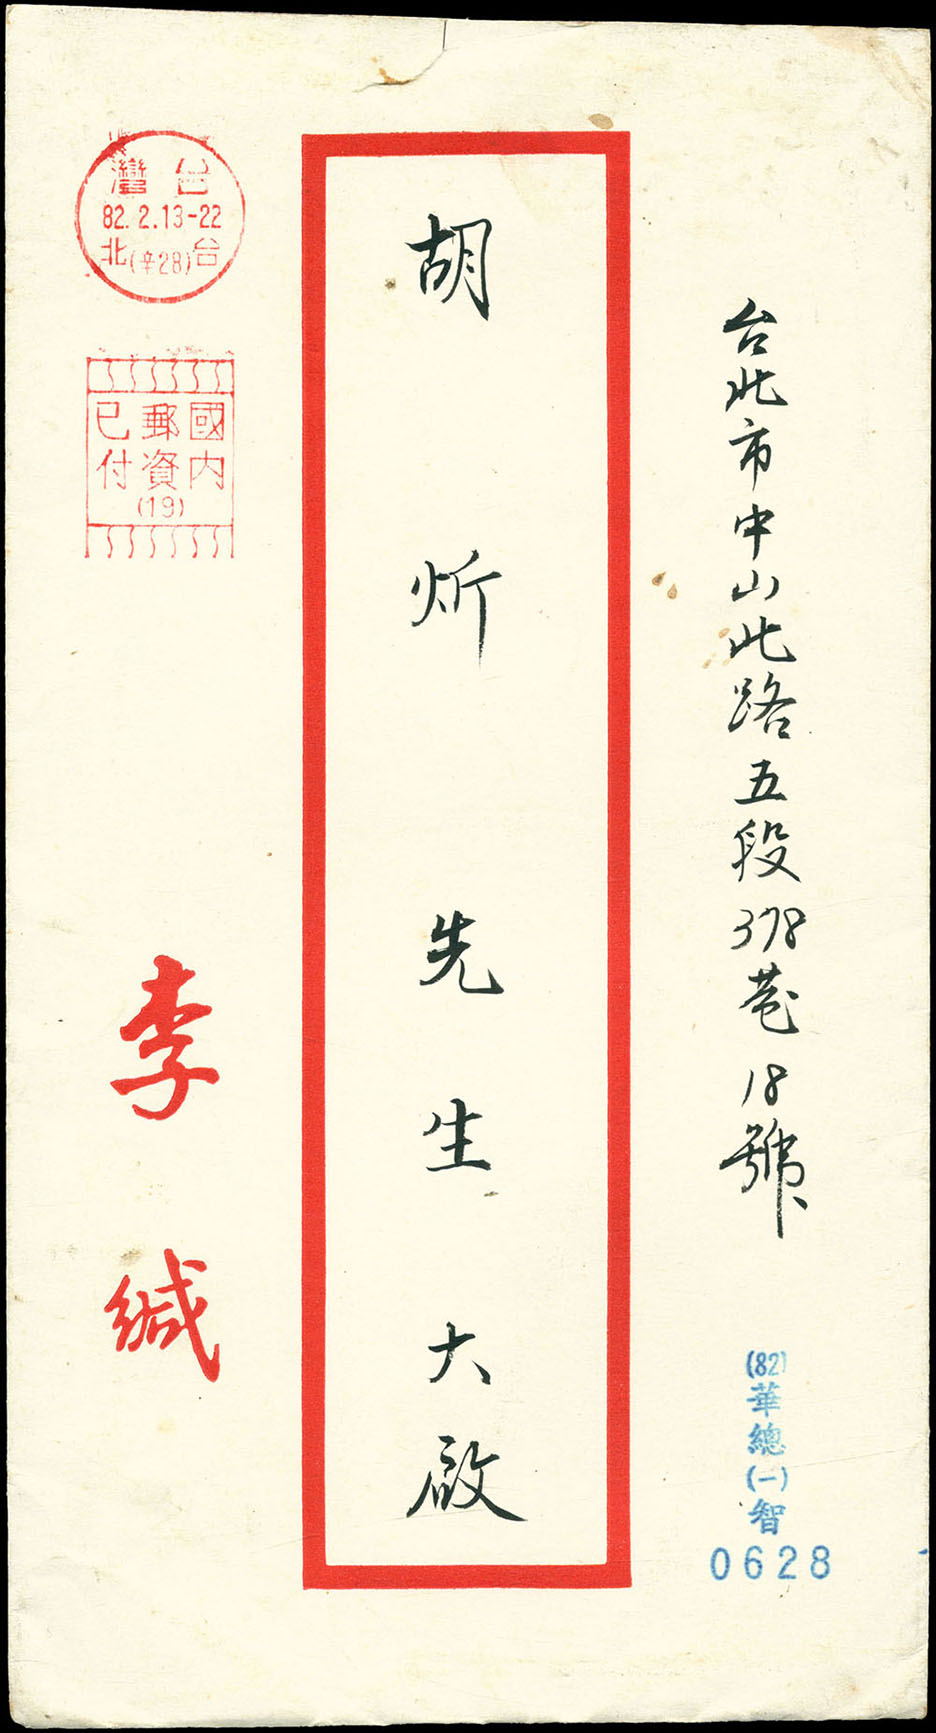 台北市中山北路五段378巷18號
(82)華總(一)智
0628
胡炘先生大啟
台灣
82.2.13-22
台(辛28)北
國內
郵資
(19)
已付
李緘